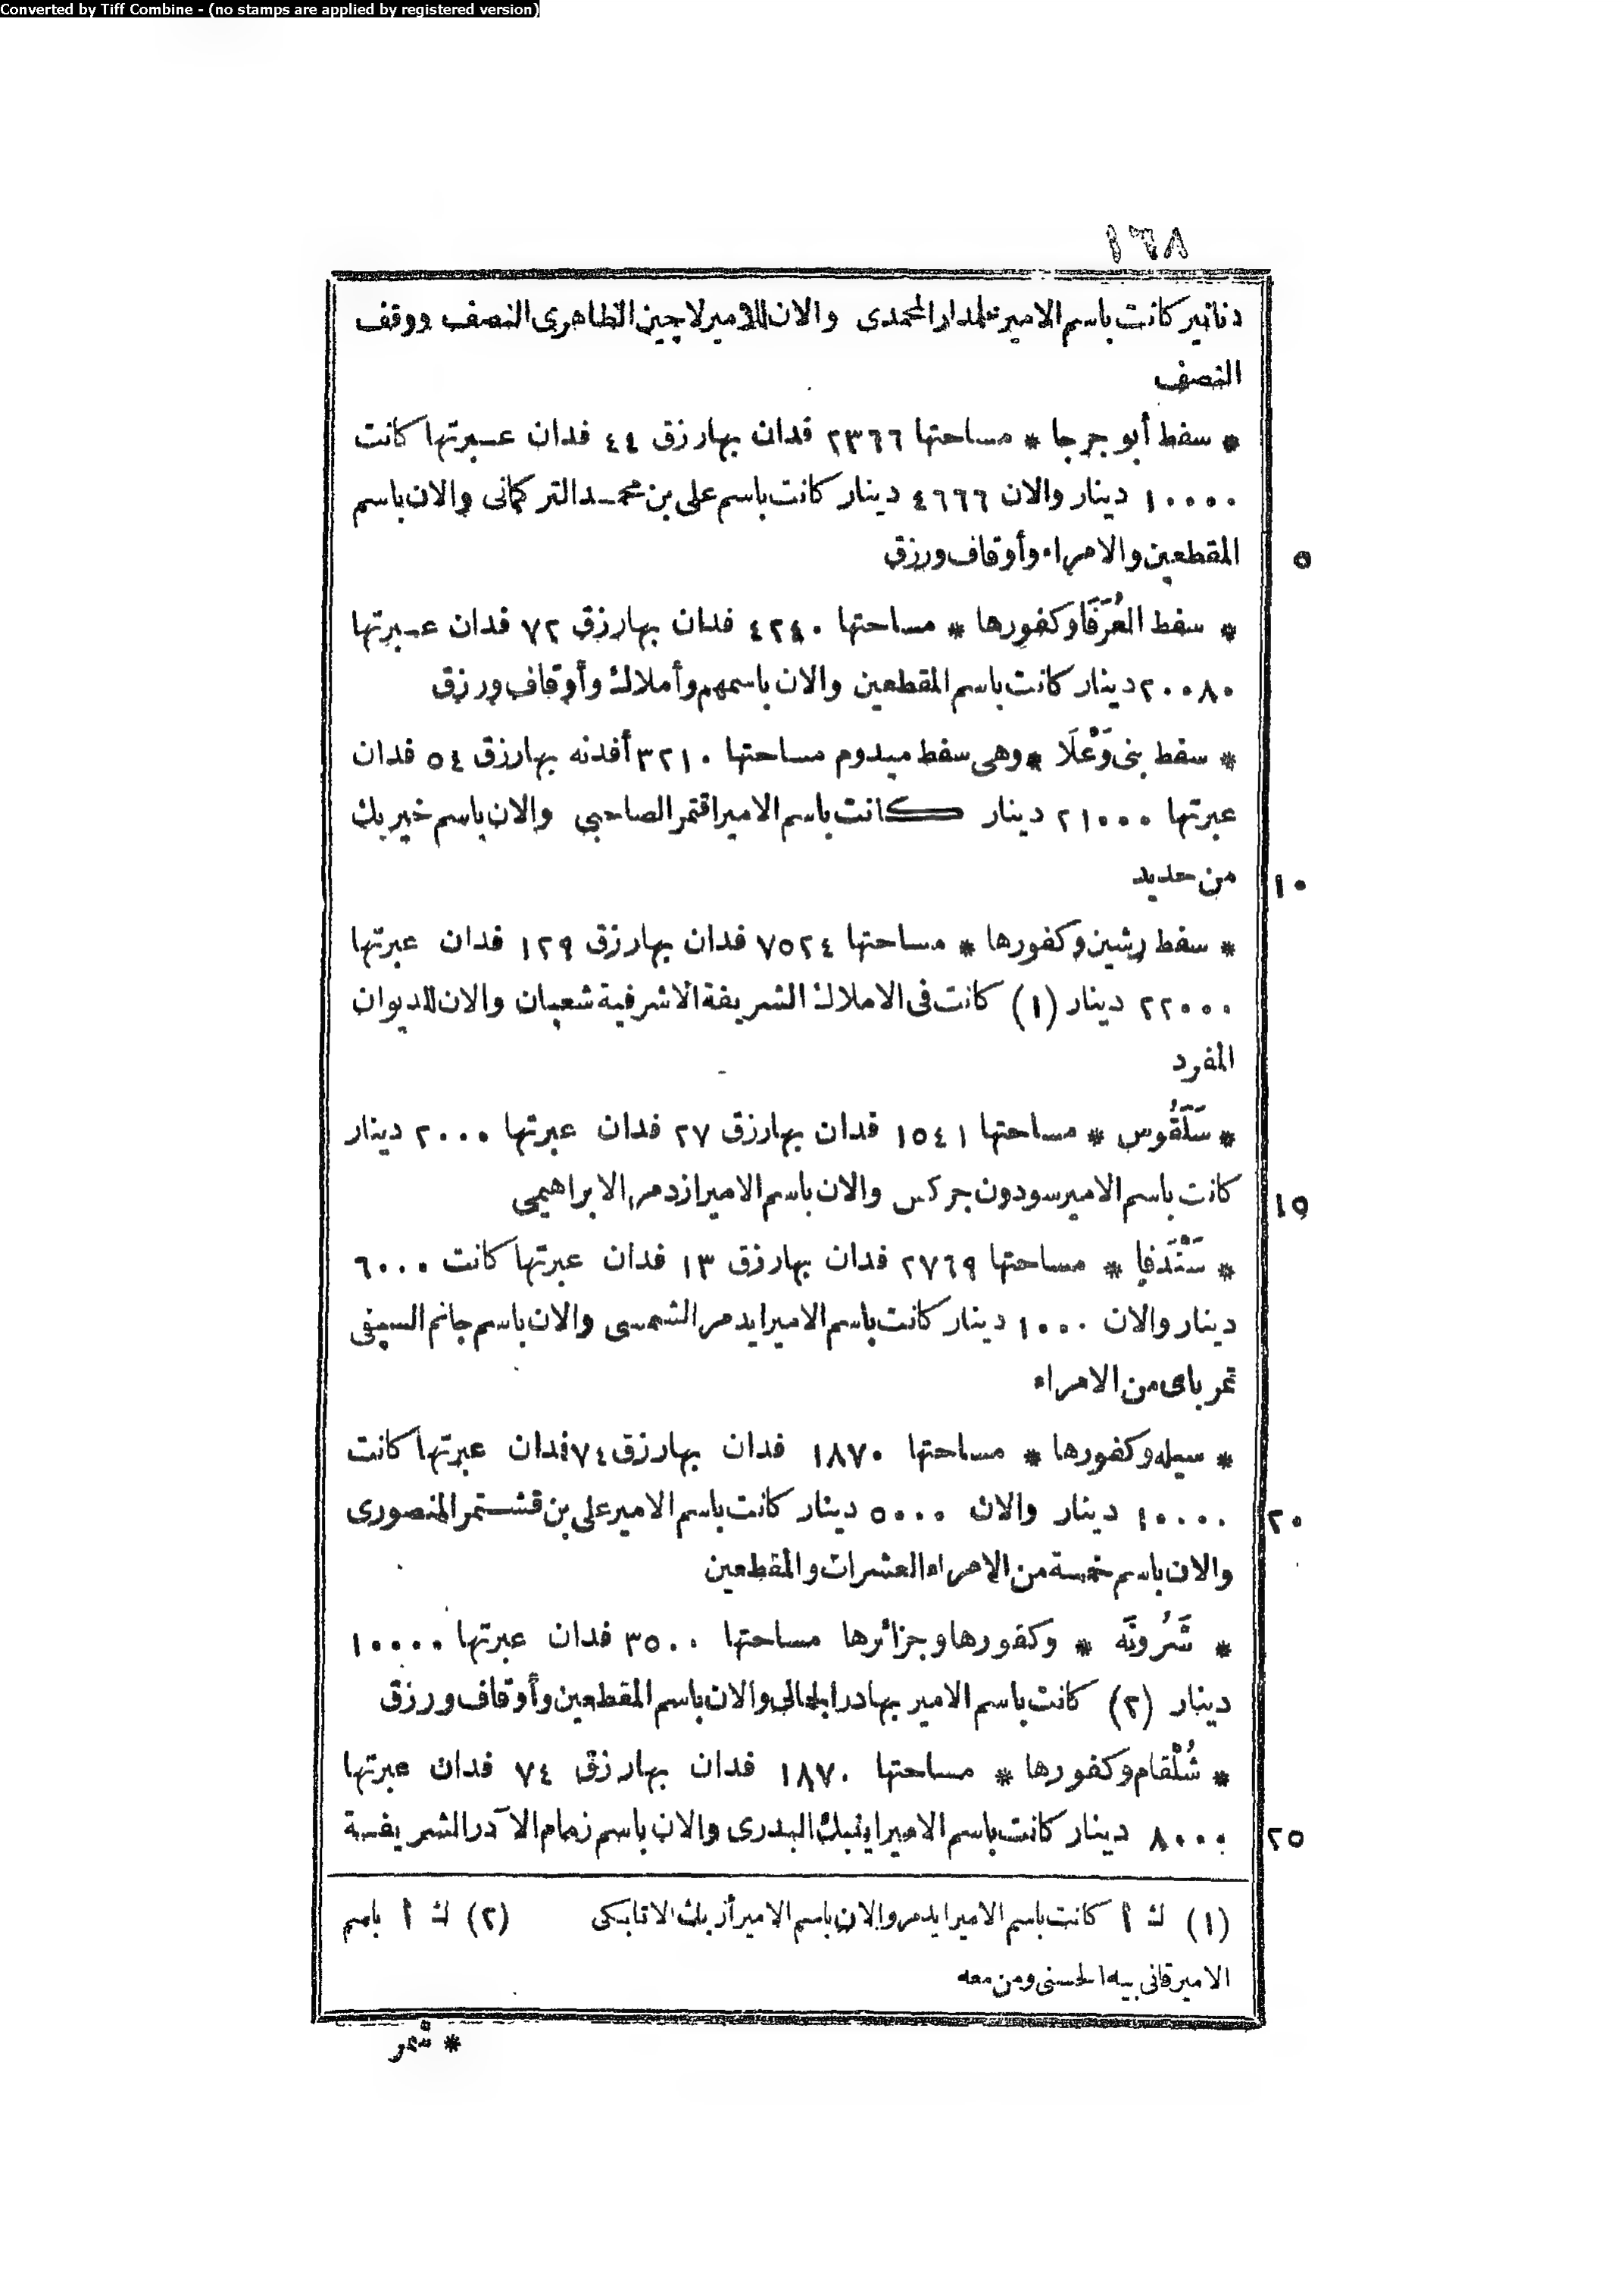 Converted by Tiff Combine - (no stamps are applied by registered version)
١٦٨
دنانير كانت باسم الامير علمدار المحمدى والان للامير لاجين الظاهرى النصف ووقف
النصف
* سفط أبو جرجا * مساحتها ٢٣٦٦ فدان بها رزق ٤٤ فدان عبرتها كانت
١٠٠٠٠ دينار والان ٤٦٦٦ دينار كانت باسم على بن محمد التركمانى والان باسم
المقطعين والامراء وأوقاف ورزق ٥
* سفط العُرَفَا وكفورها * مساحتها ٤٢٤٠ فدان بها رزق ٧٢ فدان عبرتها
٢٠٠٨٠ دينار كانت باسم المقطعين والان باسمهم وأملاك وأوقاف ورزق
* سفط بنى وَعْلَا * وهى سفط ميدوم مساحتها ٣٢١٠ أفدنه بها رزق ٥٤ فدان
عبرتها ٢١٠٠٠ دينار كانت باسم الامير اقتمر الصاحبي والان باسم خير بك
من حديد ١٠
* سفط رشين وكفورها * مساحتها ٧٥٢٤ فدان بها رزق ١٢٩ فدان عبرتها
٢٢٠٠٠ دينار (١) كانت فى الاملاك الشريفة الاشرفية شعبان والان للديوان
المفرد
* سَلَقُوس * مساحتها ١٥٤١ فدان بها رزق ٢٧ فدان عبرتها ٢٠٠٠ دينار
كانت باسم الامير سودون جركس والان باسم الامير ازدمر الابراهيمى ١٥
* سَنْدَفا * مساحتها ٢٧٦٩ فدان بها رزق ١٣ فدان عبرتها كانت ٦٠٠٠
دينار والان ١٠٠٠ دينار كانت باسم الامير ايدمر الشمسى والان باسم جانم السيفى
تمرباى من الامراء
* سيله وكفورها * مساحتها ١٨٧٠ فدان بها رزق ٧٤ فدان عبرتها كانت
١٠٠٠٠ دينار والان ٥٠٠٠ دينار كانت باسم الامير على بن قشتمر المنصورى ٢٠
والان باسم خمسة من الامراء العشرات والمقطعين
* شَرُونَه * وكفورها وجزائرها مساحتها ٣٥٠٠ فدان عبرتها ١٠٠٠٠
دينار (٢) كانت باسم الامير بهادر الجمالى والان باسم المقطعين وأوقاف ورزق
* شُلْقام وكفورها * مساحتها ١٨٧٠ فدان بها رزق ٧٤ فدان عبرتها
٨٠٠٠ دينار كانت باسم الامير اينبك البدرى والان باسم زمام الآدر الشريفة ٢٥
(١) ك أ كانت باسم الامير ايدمر والان باسم الامير أزبك الاتابكى (٢) ك أ باسم
الامير قانى بيه الحسنى ومن معه
* شمر